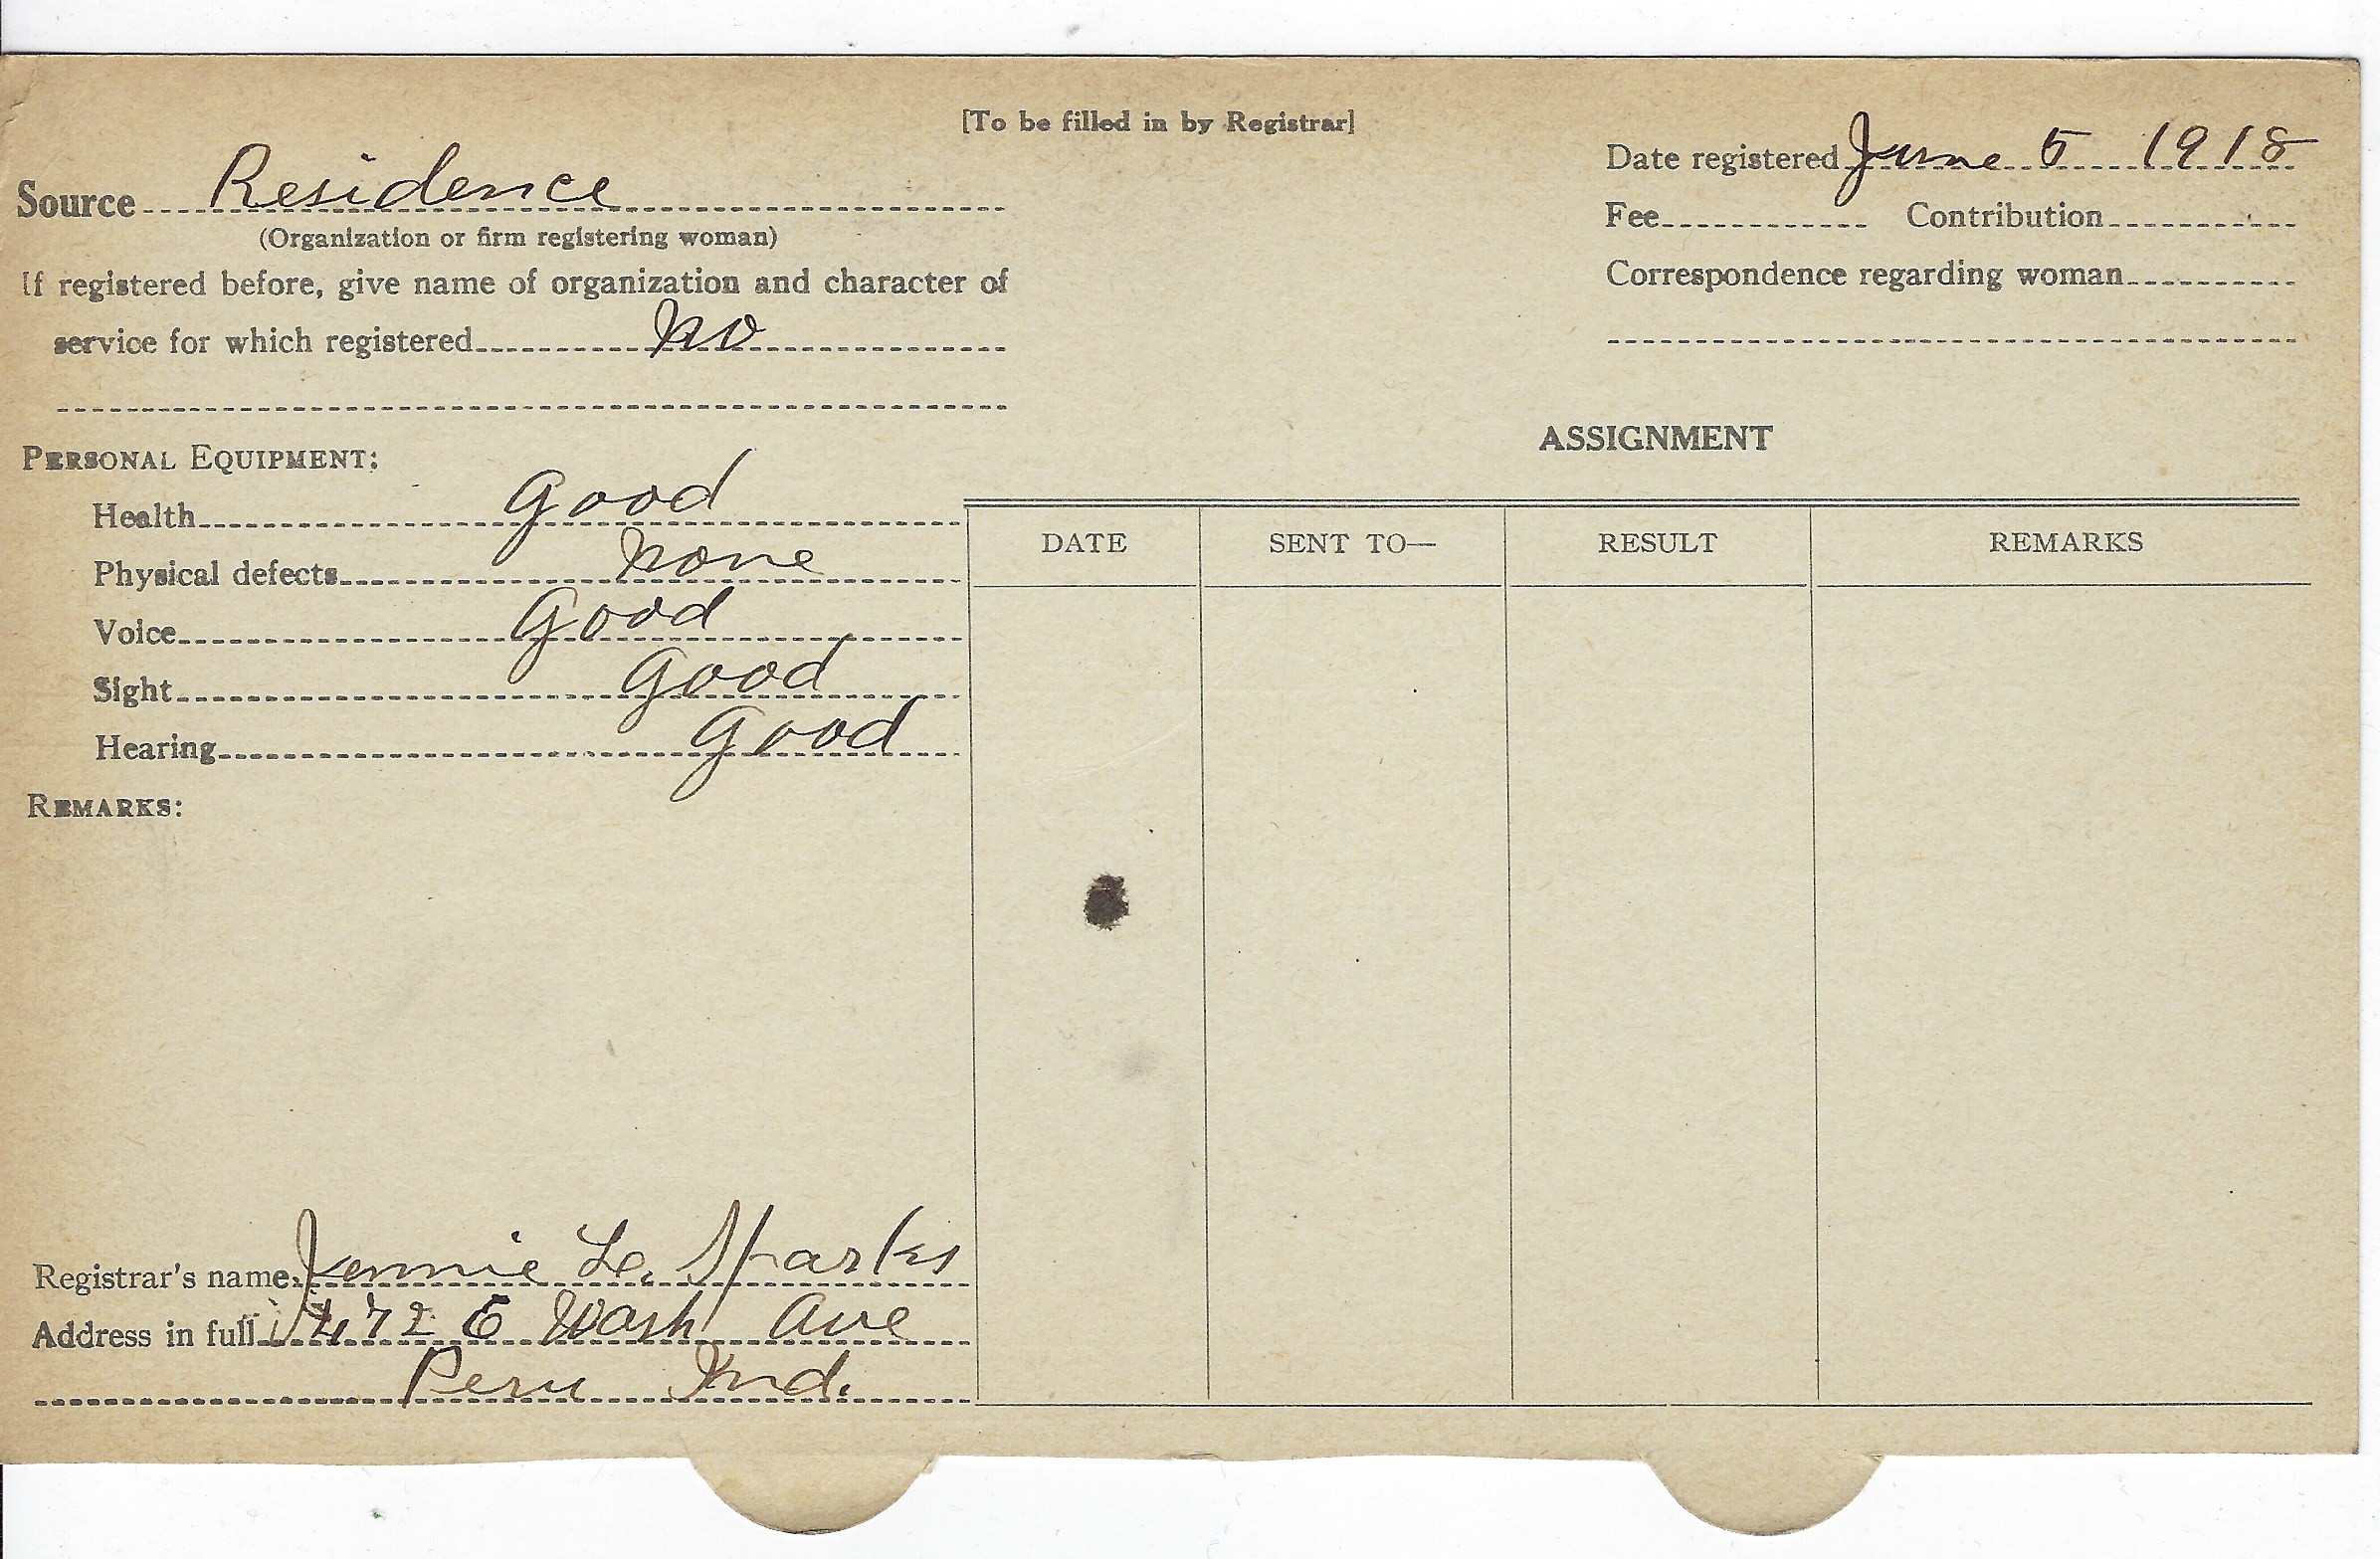 [To be filled in by Registrar]
Date registered June 5 1918
Source Residence
Fee Contribution
(Organization or firm registering woman)
Correspondence regarding woman
If registered before, give name of organization and character of
service for which registered no
ASSIGNMENT
PERSONAL EQUIPMENT:
Health Good
Physical defects none
Voice Good
Sight Good
Hearing Good
REMARKS:
DATE SENT TO— RESULT REMARKS
Registrar's name Jennie L. Sparks
Address in full 472 E Wash Ave
Peru Ind.